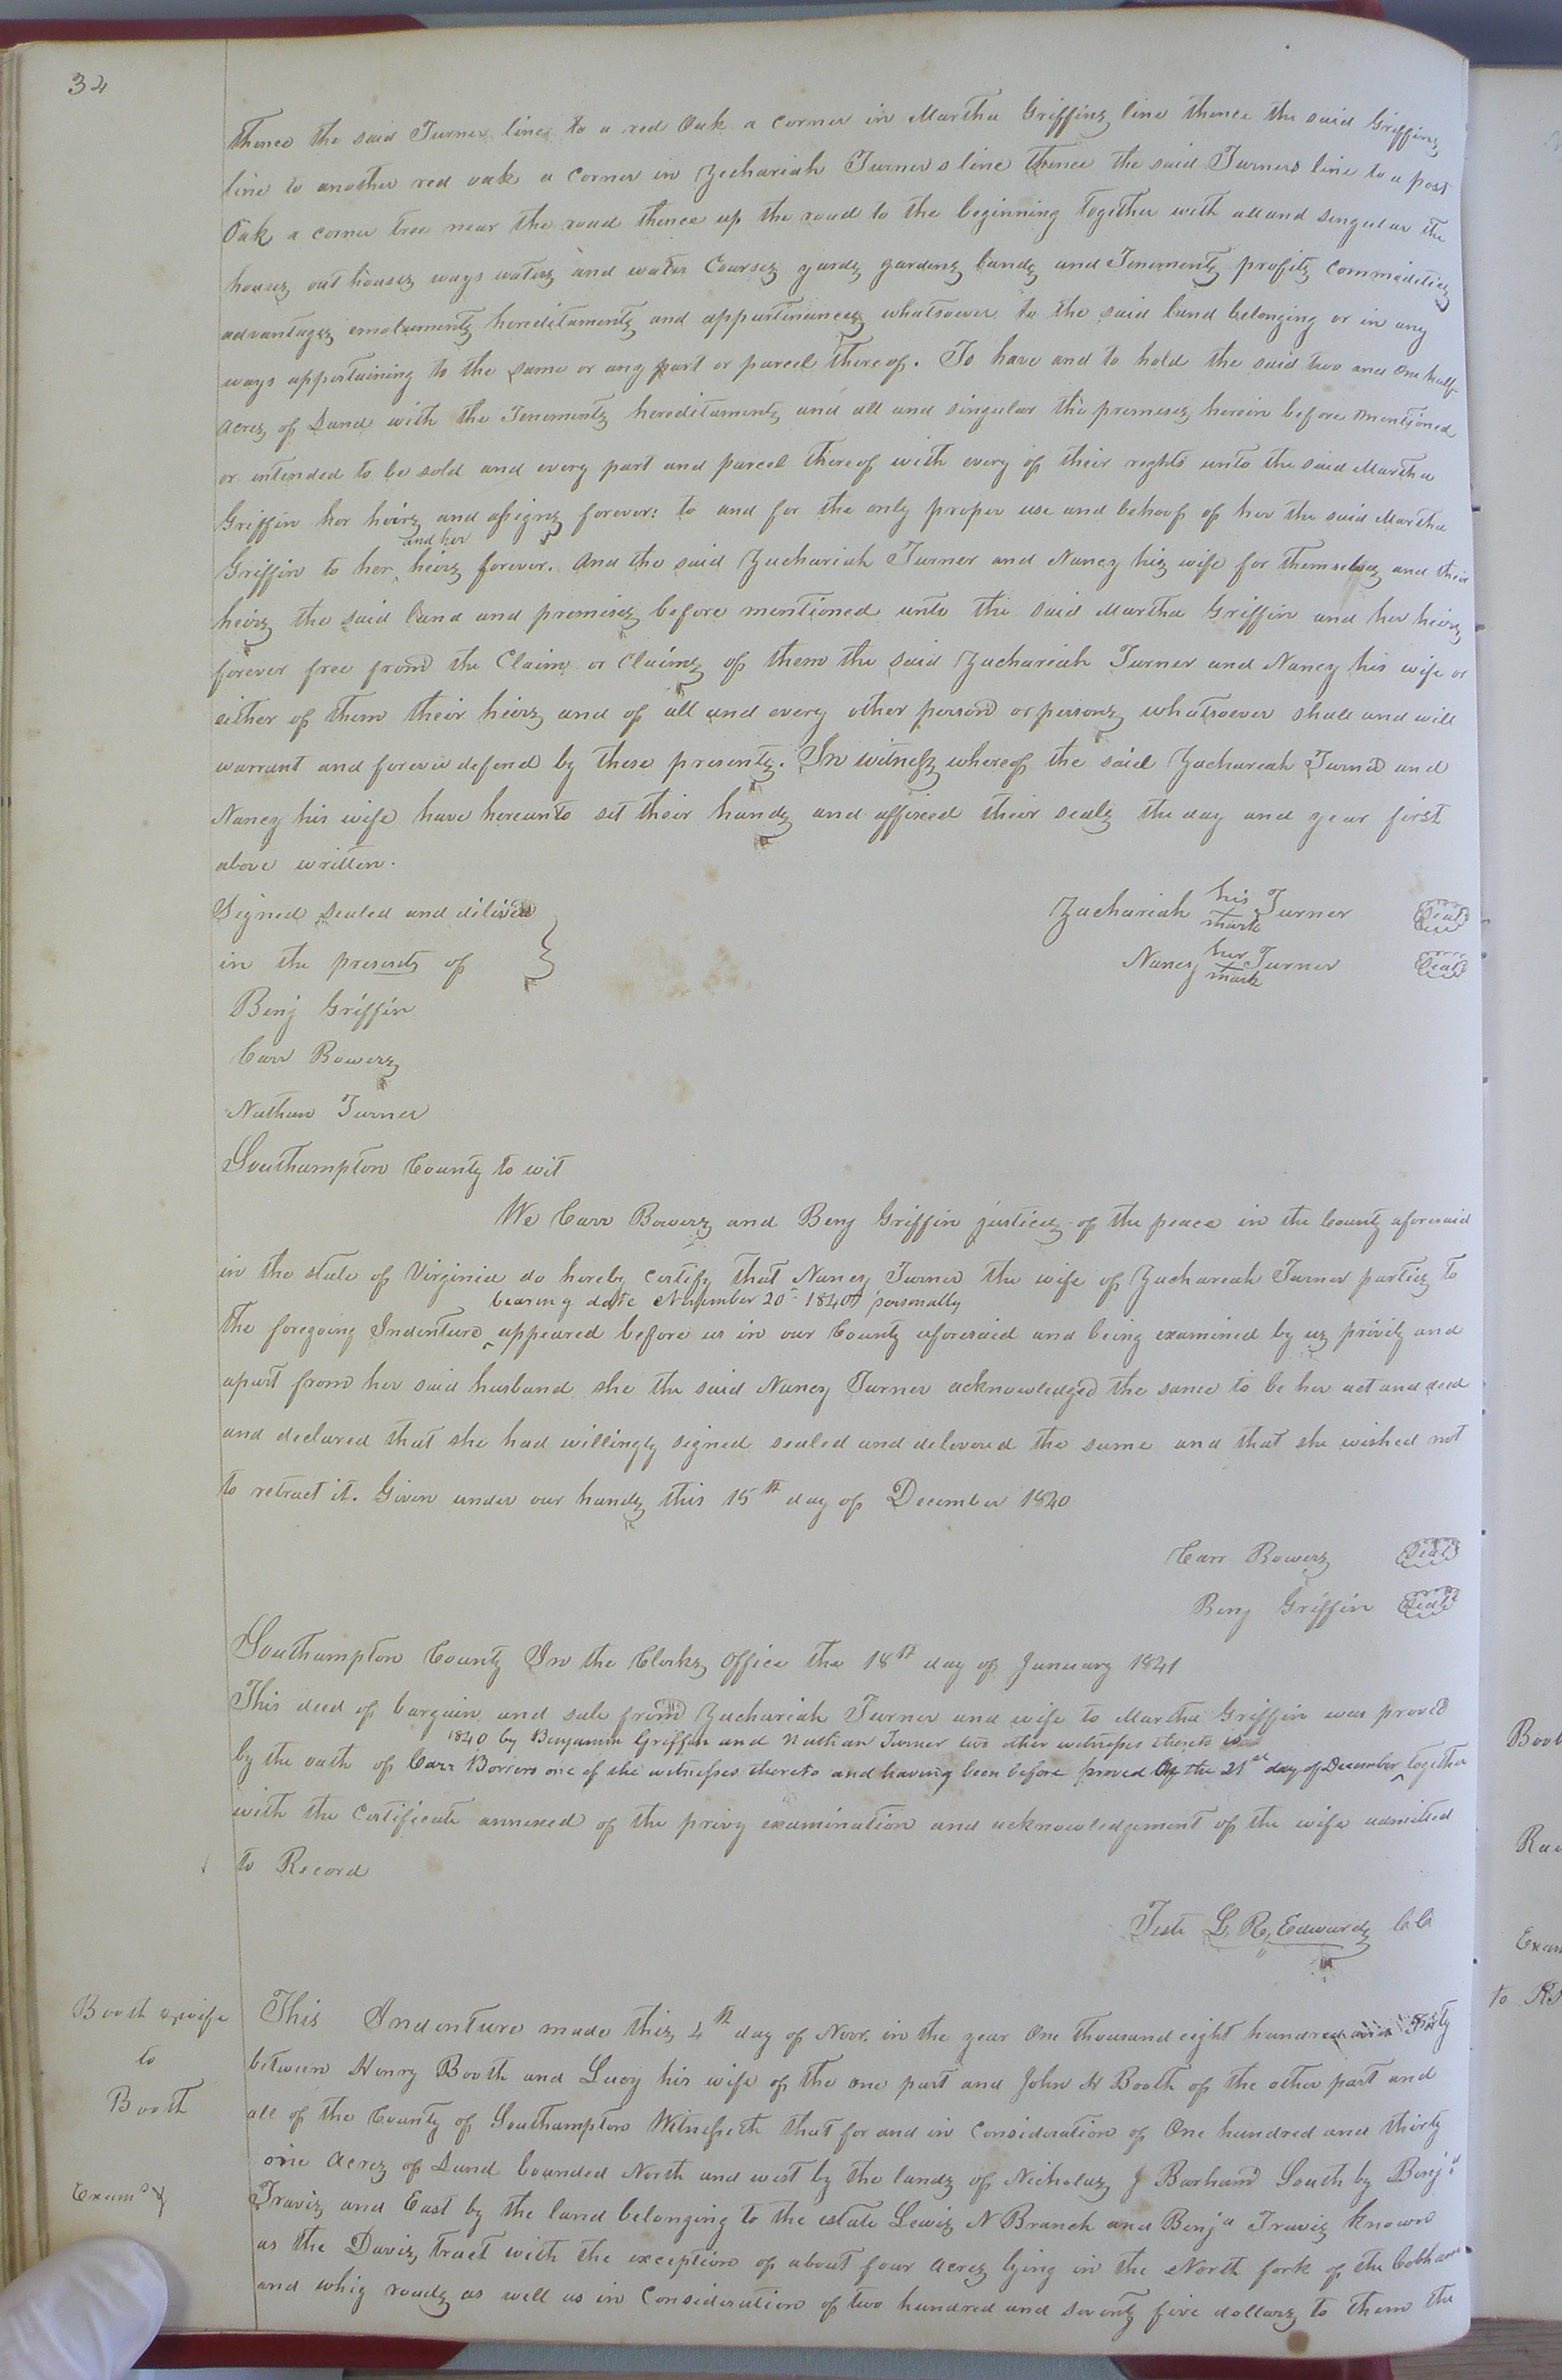 34
thence the said Turner line to a red Oak a corner in Martha Griffins line thence the said Griffins
line to another red oak a corner in Zachariah Turners line thence the said Turners line to a post
Oak a corner tree near the road thence up the road to the beginning together with all and singular the
houses out houses ways waters and water Courses yards gardens lands and Tenements profits commodities
advantages emoluments hereditaments and appurtinances whatsoever to the said land belonging or in any
ways appertaining to the same or any part or parcel thereof. To have and to hold the said two and One half
acres of Land with the Tenements hereditaments and all and singular the premises herein before mentioned
or intended to be sold and every part and parcel thereof with every of their reghts unto the said Martha
Griffin her heirs and assigns forever: to and for the only proper use and behoof of her the said Martha
and her
Griffin to her heirs forever. And the said Zachariah Turner and Nancy his wife for themselves and their
heirs the said land and premises before mentioned unto the said Martha Griffin and her heirs
forever free from the Claim or Claims of them the said Zachariah Turner and Nancy his wife or
either of them their heirs and of all and every other person or persons whatsoever shall and will
warrant and forever defend by these presents. In witness whereof the said Zachareah Turner and
Nancy his wife have hereunto set their hands and affixed their seals the day and year first
above written.
Signed Sealed and deliverd
in the presents of
Zachariah his mark Turner Seal
Nancy her mark Turner Seal
Benj Griffin
Carr Bowers
Nathan Turner
Southampton County to wit
We Carr Bowers and Benj Griffin justices of the peace in the County aforesaid
in the state of Virginia do hereby certify that Nancy Turner the wife of Zachareah Turner parties to
bearing date November 20th 1840 personally
the foregoing Indenture ^ appeared before us in our County aforesaid and being examined by us privily and
apart from her said husband she the said Nancy Turner acknowledged the same to be her act and deed
and declared that she had willingly signed sealed and delevered the same and that she wished not
to retract it. Given under our hands this 15th day of December 1840
Carr Bowers Seal
Benj Griffin Seal
Southampton County In the Clerks Office the 18th day of January 1841
This deed of bargain and sale from Zachariah Turner and wife to Martha Griffin was proved
1840 by Benjamin Griffin and Nathan Turner two other witnesses thereto is
by the oath of Carr Bowers one of the witnesses thereto and having been before proved the 21st day of December ^ together
with the Certificate annexed of the privy examination and acknowledgement of the wife admitted
to Record
Teste L. R. Edwards CC
Booth & wife
to
Booth
Examd
This Indenture made this 4th day of Novr. in the year One thousand eight hundred and Forty
between Henry Booth and Lucy his wife of the one part and John H Booth of the other part and
all of the County of Southampton Witnesseth that for and in Consideration of One hundred and thirty
one Acres of Land bounded North and west by the lands of Nicholas J Barham South by Benja
Travis and East by the land belonging to the estate Lewis N Branch and Benja Travis known
as the Davis tract with the exception of about four acres lying in the North fork of the Cobham
and whig roads as well as in Consideration of two hundred and seventy five dollars to them the
Boot
Exam
to